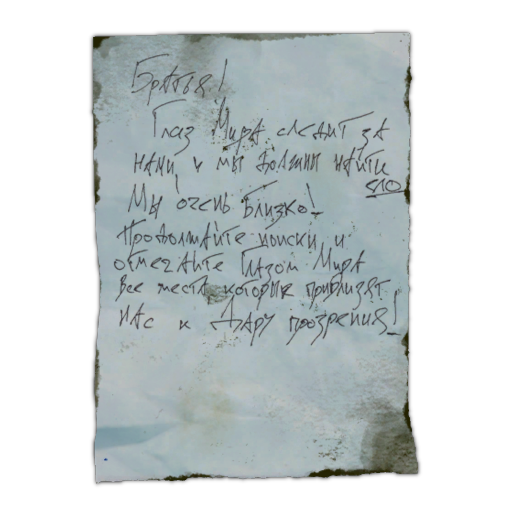 Братья!
Глаз Мира следит за
нами, и мы должны найти
его
Мы очень близко!
Продолжайте поиски и
отмечайте Глазом Мира
все места которые приблизят
нас к Дару прозрения!